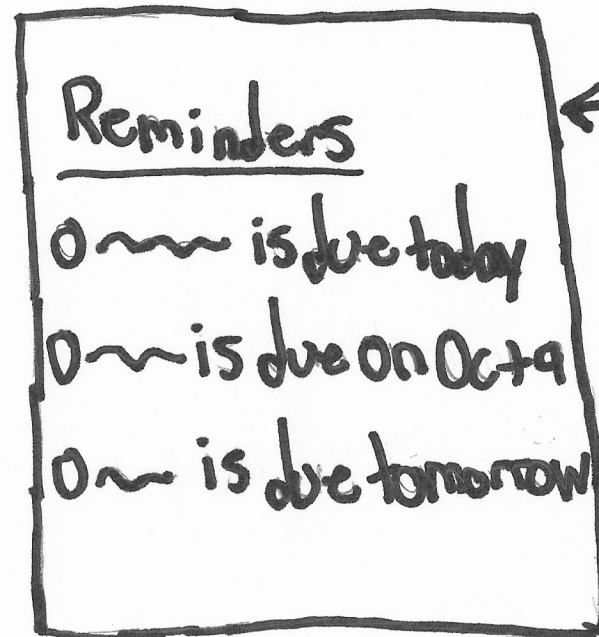 Reminders
is due today
is due on Oct 9
is due tomorrow